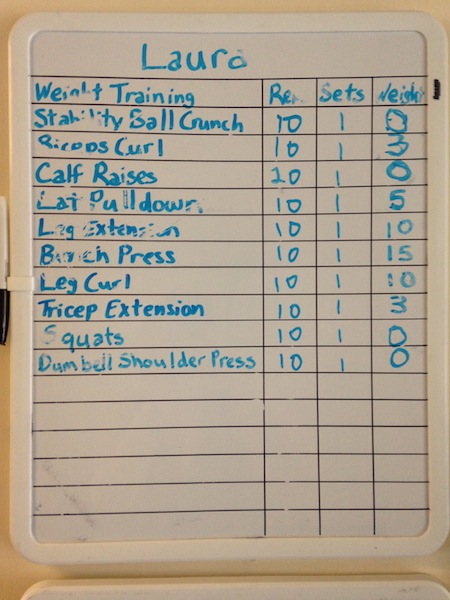 Laura
Weight Training Reps Sets Weight
Stability Ball Crunch 10 1 0
Biceps Curl 10 1 3
Calf Raises 20 1 0
Lat Pulldown 10 1 5
Leg Extension 10 1 10
Bench Press 10 1 15
Leg Curl 10 1 10
Tricep Extension 10 1 3
Squats 10 1 0
Dumbell Shoulder Press 10 1 0